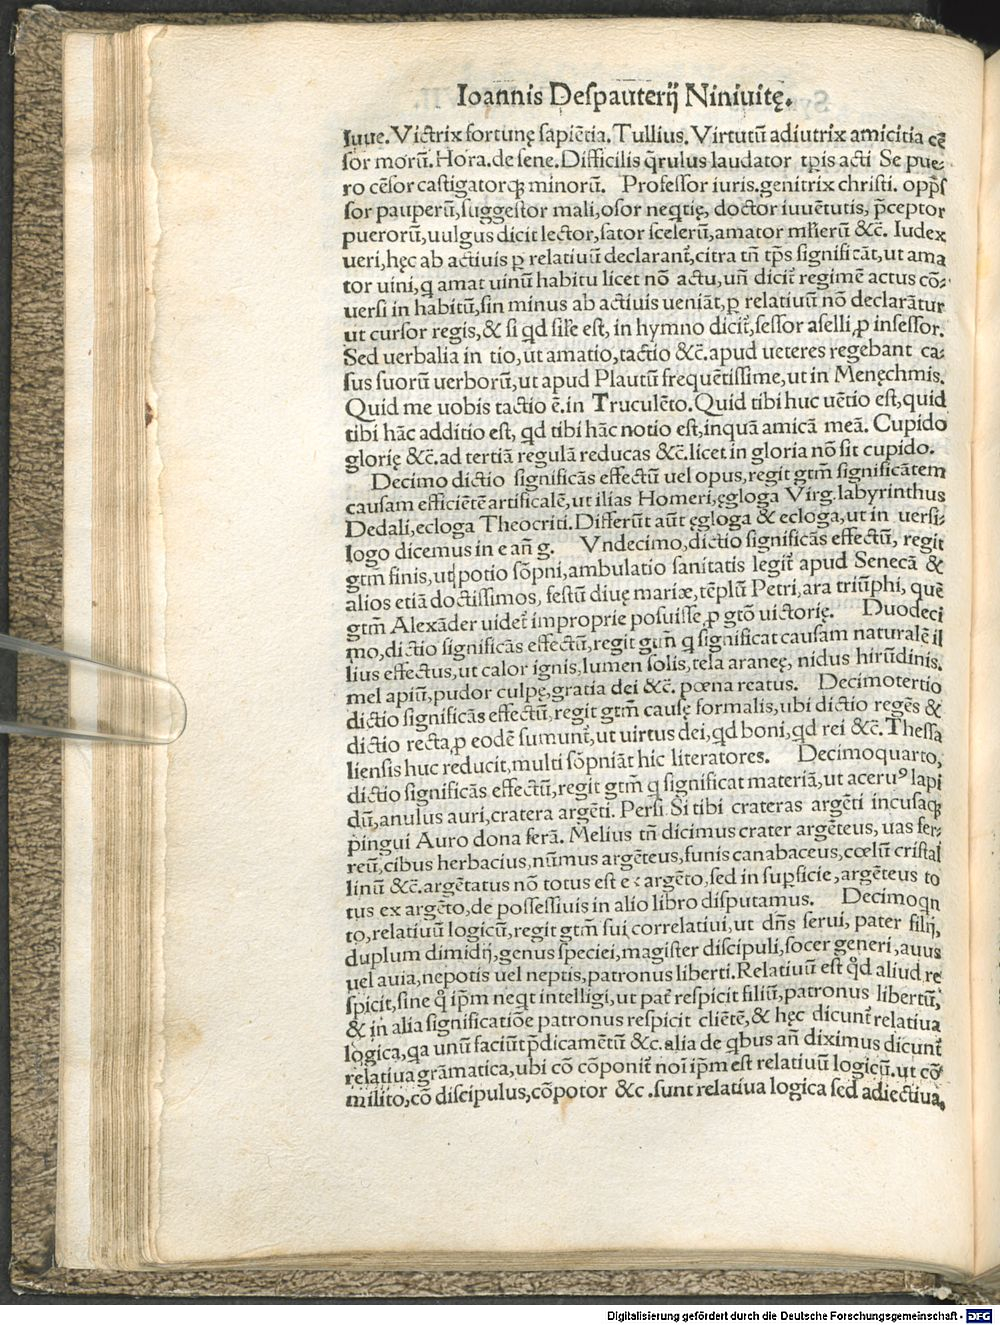 Ioannis Deſpauterij Niniuitę.
Iuue. Victrix fortunę ſapiētia. Tullius. Virtutū adiutrix amicitia cē
ſor morū. Hora. de ſene. Difficilis q̄rulus laudator tp̄is acti Se pue⸗
ro cēſor caſtigatorqꝫ minorū. Profeſſor iuris. genitrix chriſti. opp̄ſ
ſor pauperū, ſuggeſtor mali, oſor neqtię, doctor iuuētutis, p̄ceptor
puerorū, uulgus dicit lector, ſator ſcelerū, amator mlīerū &c̄. Iudex
ueri, hęc ab actiuis ꝑ relatiuū declarant᷑, citra tn̄ tp̄s ſignificāt, ut ama
tor uini, q amat uinū habitu licet nō actu, un̄ dicit᷑ regimē actus cō⸗
uerſi in habitū, ſin minus ab actiuis ueniāt, ꝑ relatiuū nō declarātur
ut curſor regis, & ſi qd ſil̄e eſt, in hymno dicit᷑, ſeſſor aſelli, ꝓ inſeſſor.
Sed uerbalia in tio, ut amatio, tactio &c̄. apud ueteres regebant ca⸗
ſus ſuorū uerborū, ut apud Plautū frequētiſſime, ut in Menęchmis.
Quid me uobis tactio ē. in Truculēto. Quid tibi huc uētio eſt, quid
tibi hāc additio eſt, qd tibi hāc notio eſt, inquā amicā meā. Cupido
glorię &c̄. ad tertiā regulā reducas &c̄. licet in gloria nō ſit cupido.
Decimo dictio ſignificās effectū uel opus, regit gtm̄ ſignificātem
cauſam efficiētē artificalē, ut ilias Homeri, ęgloga Virg. labyrinthus
Dedali, ecloga Theocriti. Differūt aūt ęgloga & ecloga, ut in uerſi⸗
logo dicemus in e an̄ g. Vndecimo, dictio ſignificās effectū, regit
gtm̄ finis, ut potio ſōpni, ambulatio ſanitatis legit᷑ apud Senecā &
alios etiā doctiſſimos, feſtū diuę marię, tēplū Petri, ara triūphi, quē
gtm̄ Alexāder uidet᷑ improprie poſuiſſe, ꝓ gtō uictorię. Duodeci
mo, dictio ſignificās effectū, regit gtm̄ q ſignificat cauſam naturalē il
lius effectus, ut calor ignis, lumen ſolis, tela araneę, nidus hirūdinis,
mel apiū, pudor culpę, gratia dei &c̄. pœna reatus. Decimotertio
dictio ſignificās effectū, regit gtm̄ cauſę formalis, ubi dictio regēs &
dictio recta, ꝓ eodē ſumunt᷑, ut virtus dei, qd boni, qd rei &c̄. Theſſa
lienſis huc reducit, multi ſōpniāt hic literatores. Decimoquarto,
dictio ſignificās effectū, regit gtm̄ q ſignificat materiā, ut aceruꝰ lapi
dū, anulus auri, cratera argēti. Perſi. Si tibi crateras argēti incuſaqꝫ
pingui Auro dona ferā. Melius tn̄ dicimus crater argēteus, uas fer⸗
reū, cibus herbacius, nūmus argēteus, funis canabaceus, cœlū criſtal
linū &c̄. argētatus nō totus eſt ex argēto, ſed in ſuꝑficie, argēteus to
tus ex argēto, de poſſeſſiuis in alio libro diſputamus. Decimoqn
to, relatiuū logicū, regit gtm̄ ſui correlatiui, ut dn̄s ſerui, pater filij,
duplum dimidij, genus ſpeciei, magiſter diſcipuli, ſocer generi, auus
uel auia, nepotis uel neptis, patronus liberti. Relatiuū eſt qd aliud re
ſpicit, ſine q° ip̄m neqt intelligi, ut pat᷑ reſpicit filiū, patronus libertū,
& in alia ſignificatiōe patronus reſpicit cliētē, & hęc dicunt᷑ relatiua
logica, qa unū faciūt p̄dicamētū &c. alia de qbus an̄ diximus dicunt᷑
relatiua grāmatica, ubi cō cōponit᷑ noī ip̄m eſt relatiuū logicū. ut cō⸗
milito, cō diſcipulus, cōpotor &c. ſunt relatiua logica ſed adiectiua,
Digitalisierung gefördert durch die Deutsche Forschungsgemeinschaft - DFG